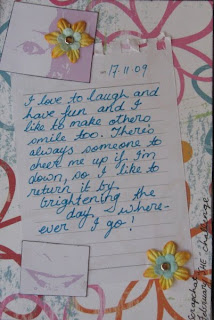 17·11·09
I love to laugh and
have fun and I
like to make others
smile too. There's
always someone to
cheer me up if I'm
down, so I like to
return it by
brightening the
day, where-
ever I go!
Scrapchat
February The Challenge